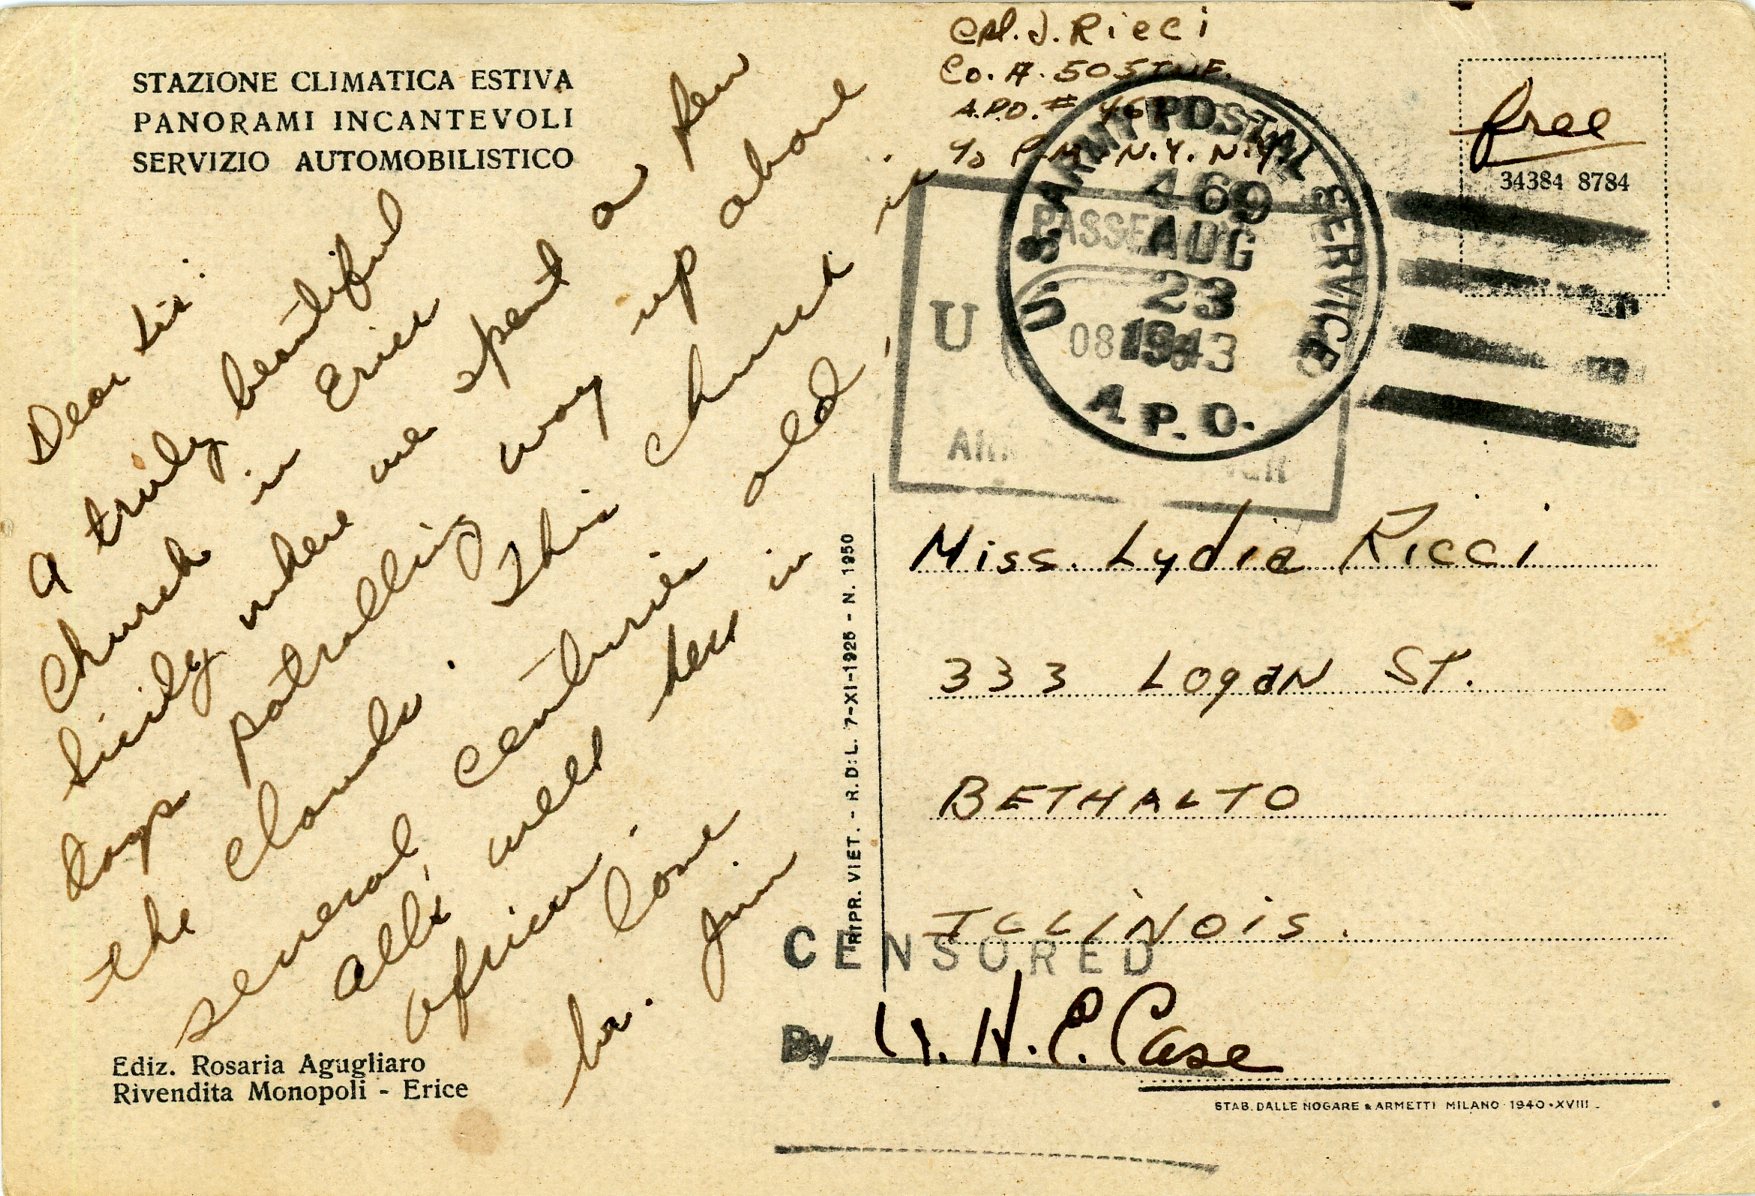 STAZIONE CLIMATICA ESTIVA
PANORAMI INCANTEVOLI
SERVIZIO AUTOMOBILISTICO
Dear Sis:
A truly beautiful
Church in Erice
Sicily where we spent a few
days patrolling way up above
the clouds. This church is
several centuries old,
All's well here in
Africa.
Love
br. Jim
Ediz. Rosaria Agugliaro
Rivendita Monopoli - Erice
RIPR. VIET. - R. D: L. 7-XI-1925 - N. 1950
Cpl. J. Ricci
Co. A. 505
A.P.O. # 469
c/o P.M. N.Y. N.Y.
free
34384 8784
U. S. ARMY POSTAL SERVICE
469
AUG
23
1943
A. P. O.
PASSED
U
08
Miss. Lydia Ricci
333 Logan St.
BETHALTO
ILLINOIS.
CENSORED
By H. E. Case
STAB. DALLE NOGARE & ARMETTI MILANO 1940-XVIII